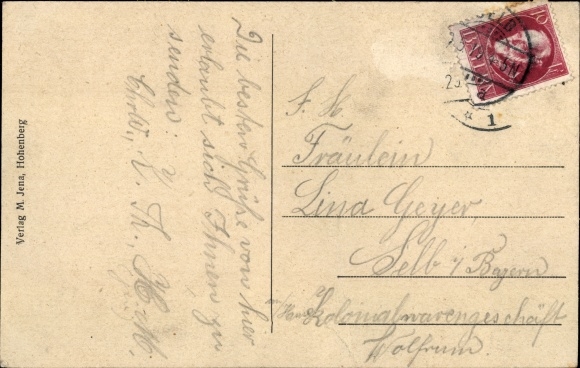 Die besten Grüße von hier
erlaubt sich Ihnen zu
senden:
Th. H. M.
Verlag M. Jena, Hohenberg
Fräulein
Lina Geyer
Selb i/Bayern
Kolonialwarengeschäft
Wolfrum.
SELB
10
1